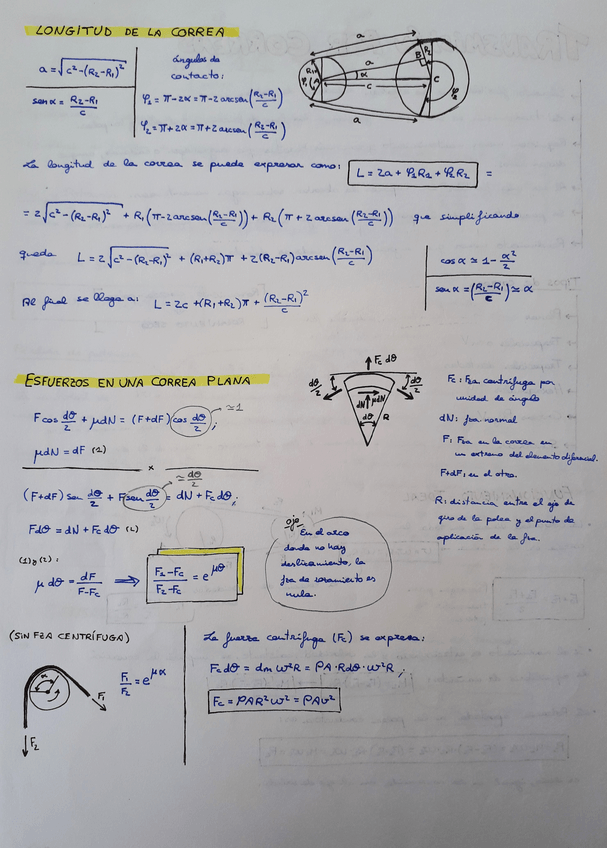 LONGITUD DE LA CORREA
a = √(c² − (R₂−R₁)²)
sen α = (R₂−R₁)/c
ángulos de
contacto:
φ₂ = π − 2α = π − 2 arcsen((R₂−R₁)/c)
φ₂ = π + 2α = π + 2 arcsen((R₂−R₁)/c)
a
a
B
R₂
R₁
φ₁
A
α
C
c
φ₂
a
La longitud de la correa se puede expresar como: L = 2a + φ₂R₂ + φ₂R₂ =
= 2√(c² − (R₂−R₁)²) + R₁(π − 2 arcsen((R₂−R₁)/c)) + R₂(π + 2 arcsen((R₂−R₁)/c)) que simplificando
queda L = 2√(c² − (R₂−R₁)²) + (R₁+R₂)π + 2(R₂−R₁) arcsen((R₂−R₁)/c)
cos α ≃ 1 − α²/2
sen α = ((R₂−R₁)/c) ≃ α
Al final se llega a: L = 2c + (R₁+R₂)π + (R₂−R₁)²/c
ESFUERZOS EN UNA CORREA PLANA
F cos dθ/2 + μdN = (F+dF) cos dθ/2 ; ≃1
μdN = dF (1)
x
(F+dF) sen dθ/2 + F sen dθ/2 = dN + Fc dθ; ≃ dθ/2
Fdθ = dN + Fc dθ (2)
(1) y (2):
μ dθ = dF/(F−Fc) ⟹ (F₂−Fc)/(F₂−Fc) = e^μθ
Fc dθ
dθ/2
dθ/2
dN
μdN
dθ
R
Fc: Fza centrífuga por
unidad de ángulo
dN: fza normal
F: Fza en la correa en
un extremo del elemento diferencial.
F+dF: en el otro.
R: distancia entre el eje de
giro de la polea y el punto de
aplicación de la fza.
ojo
En el arco
donde no hay
deslizamiento, la
fza de rozamiento es
nula.
(SIN FZA CENTRÍFUGA)
α
F₁
F₂
F₁/F₂ = e^μα
La fuerza centrífuga (Fc) se expresa:
Fc dθ = dm ω²R = ρA·Rdθ·ω²R ;
Fc = ρAR²ω² = ρAv²